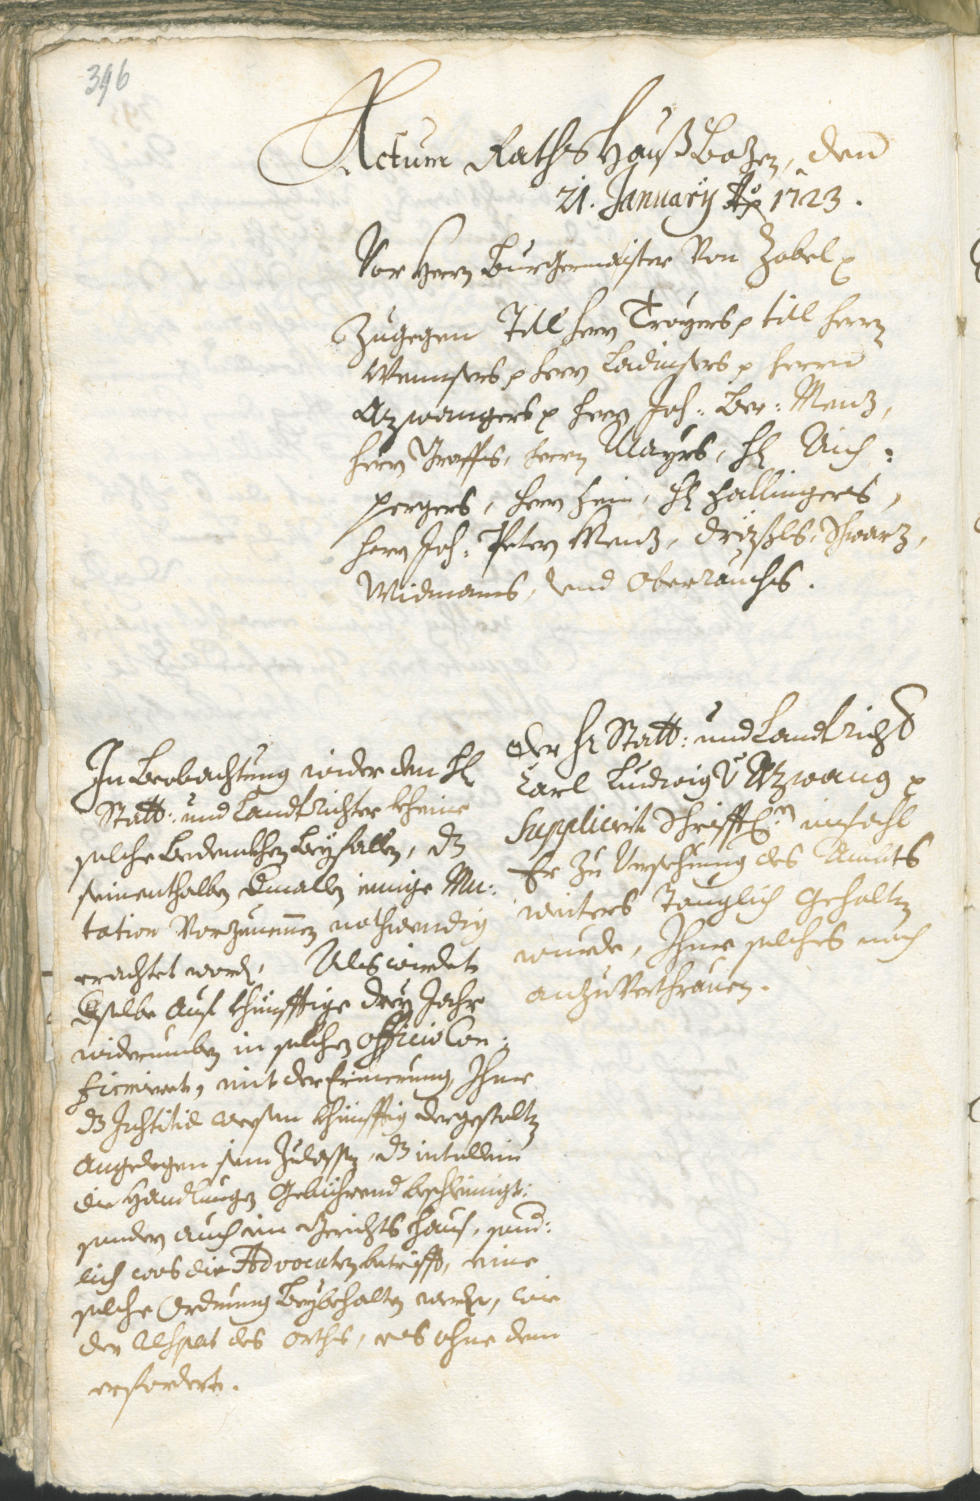 396
Actum Raths Hauß Bozen, den
21. January Ao 1723.
Vor Herrn Burgermaister Von Zobel p
Zugegen Titl herrn Troyers p titl herrn
Wennsers p herrn Ladinsers p herrn
Azwangers p herrn Joh: Ber: Menz,
herrn Graffs, herrn Mayrs, H Aich:
pergers, herrn hein, H hallingers,
herrn Joh: Peter Menz, Schwarz,
Widmans, und Oberrauchs.
Der Hr Statt: und Landtricht
Carl Ludwig v Azwang p
Supplicirt Schrifftl: umfahl
Er zu Versehung des Ambts
weiters Tauglich gehalten
wurde, Ihme solches noch
anzuverthrauen.
In Beobachtung wider den H
Statt: und Landtrichter kheine
solche bedenkhen beyfallen, dz
seinenthalben dmallen einige Mu:
tation Vorzunemmen nothwendig
erachtet word, Als wirdet
dselbe auf khünfftige drey Jahr
widerumben in solchen officio Con:
firmiert, mit der Erinerung, Ihme
dz Justitiæ wesen khünfftig dergestalten
angelegen sein zulassen, dz nit allein
die Handlungen gebührend beschleinigt:
sonder auch im Gerichts hauß, sond:
lich was die Advocaten betrifft, eine
solche Ordnung beybehalten werde, wie
der Respect des orths, es ohne dem
erfordert.